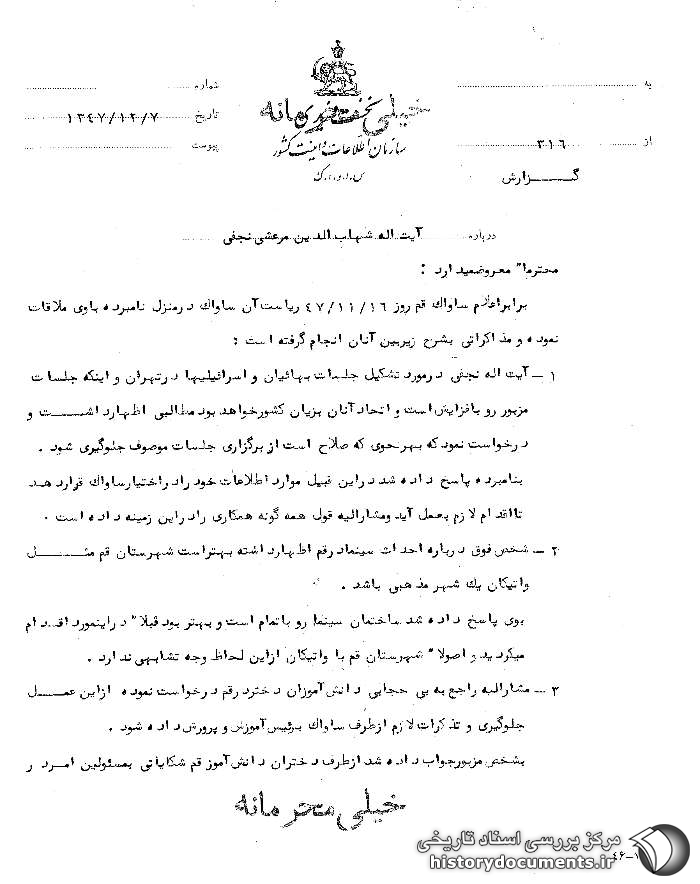 به
شماره
خیلی محرمانه
تاریخ ۱۳۴۷/۱۲/۷
سازمان اطلاعات و امنیت کشور
از ۳۱۶
پیوست
س.ا.و.ا.ک
گــــزارش
درباره آیت اله شهاب الدین مرعشی نجفی
محترما" معروضمیدارد :
برابر اعلام ساواك قم روز ۴۷/۱۱/۱۶ ریاست آن ساواك در منزل نامبرده باوی ملاقات
نموده و مذاکراتی بشرح زیر بین آنان انجام گرفته است :
۱ – آیت اله نجفی در مورد تشکیل جلسات بهائیان و اسرائیلیها در تهران و اینکه جلسات
مزبور رو بافزایش است و اتحاد آنان بزیان کشور خواهد بود مطالبی اظهار داشـــت و
درخواست نمود که بهر نحوی که صلاح است از برگزاری جلسات موصوف جلوگیری شود .
بنامبرده پاسخ داده شد در این قبیل موارد اطلاعات خود را در اختیار ساواك قرار دهد
تا اقدام لازم بعمل آید و مشارالیه قول همه گونه همکاری را در این زمینه داده است .
۲ – شخص فوق درباره احداث سینما در قم اظهار داشته بهتر است شهرستان قم مثــــل
واتیکان یك شهر مذهبی باشد .
بوی پاسخ داده شد ساختمان سینما رو باتمام است و بهتر بود قبلا" در اینمورد اقدام
میکردید و اصولا" شهرستان قم با واتیکان از این لحاظ وجه تشابهی ندارد .
۳ – مشارالیه راجع به بی حجابی دانش آموزان دختر در قم درخواست نموده از این عمــل
جلوگیری و تذکرات لازم از طرف ساواك برئیس آموزش و پرورش داده شود .
بشخص مزبور جواب داده شد از طرف دختران دانش آموز قم شکایاتی بمسئولین امر در
خیلی محرمانه
مرکز بررسی اسناد تاریخی
historydocuments.ir